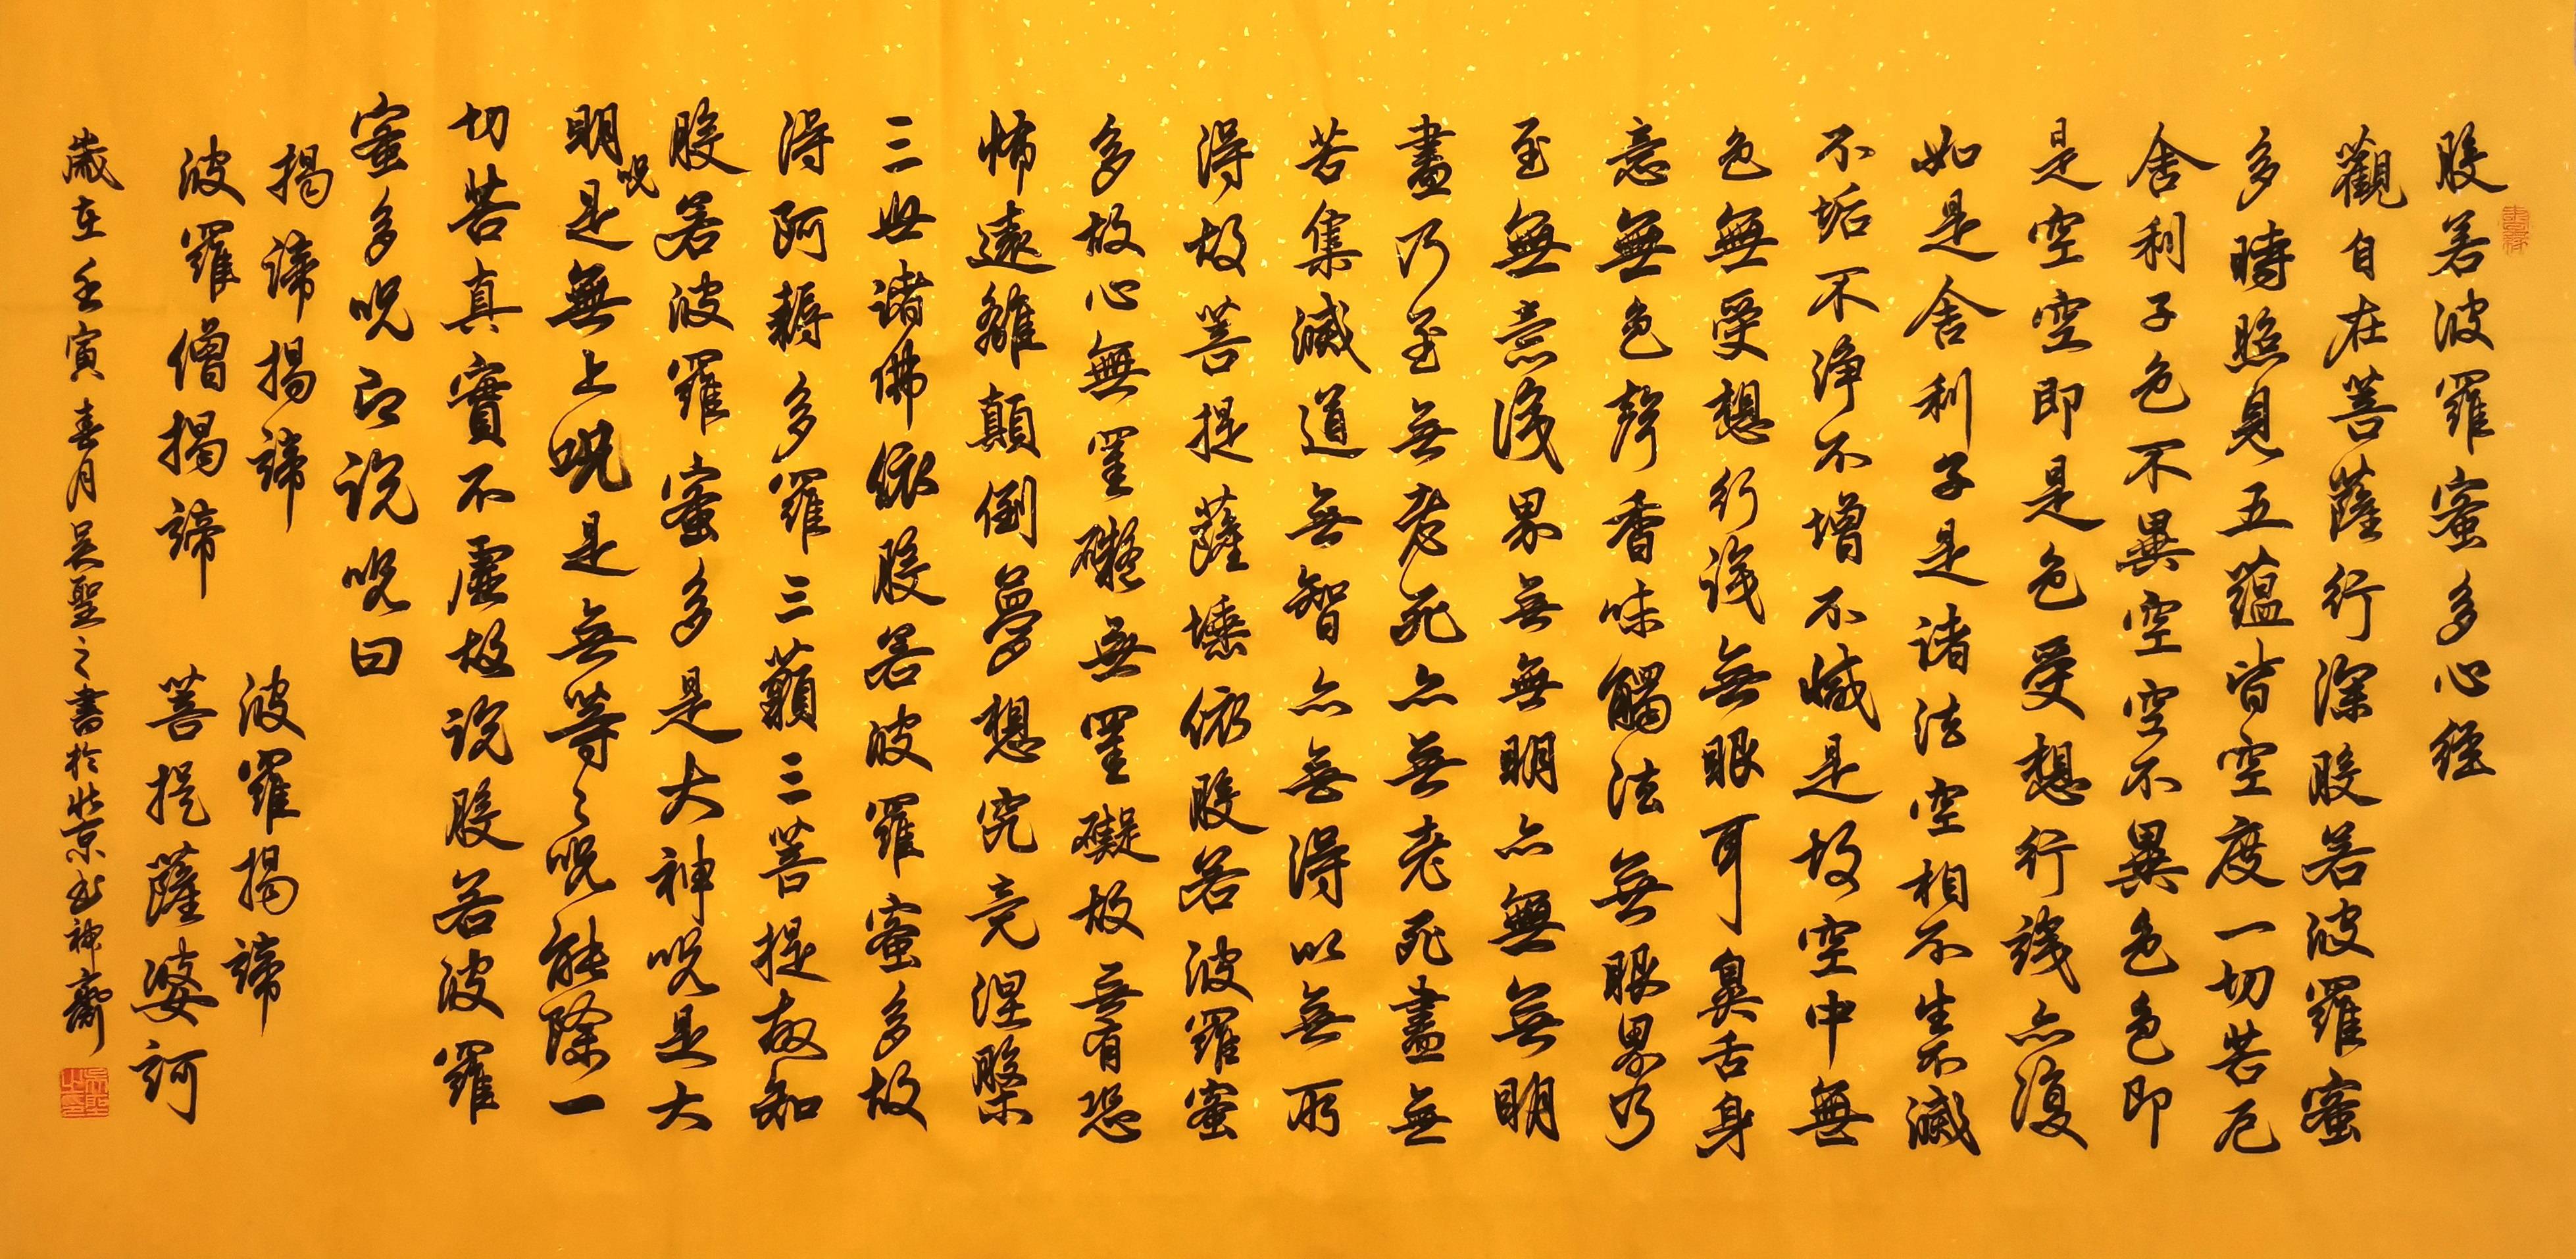 般若波羅蜜多心經
觀自在菩薩行深般若波羅蜜
多時照見五蘊皆空度一切苦厄
舍利子色不異空空不異色色即
是空空即是色受想行識亦復
如是舍利子是諸法空相不生不滅
不垢不淨不增不減是故空中無
色無受想行識無眼耳鼻舌身
意無色聲香味觸法無眼界乃
至無意識界無無明亦無無明
盡乃至無老死亦無老死盡無
苦集滅道無智亦無得以無所
得故菩提薩埵依般若波羅蜜
多故心無罣礙無罣礙故無有恐
怖遠離顛倒夢想究竟涅槃
三世諸佛依般若波羅蜜多故
得阿耨多羅三藐三菩提故知
般若波羅蜜多是大神咒是大
明咒是無上咒是無等等咒能除一
切苦真實不虛故說般若波羅
蜜多咒即說咒曰
揭諦揭諦 波羅揭諦
波羅僧揭諦 菩提薩婆訶
歲在壬寅春月吳聖之書於北京書神齋